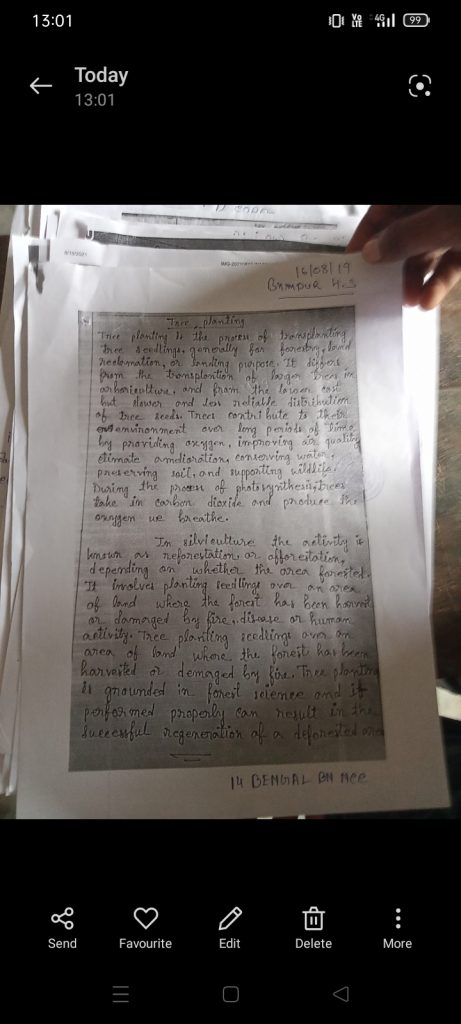 13:01
Vo LTE 4G 99
Today
13:01
8/16/2021
16/08/19
Bnmpur H.S
Tree planting
Tree planting is the process of transplanting
tree seedlings, generally for forestry, land
reclamation, or landing purpose. It differs
from the transplantion of larger trees in
arboriculture, and from the lower cost
but slower and less reliable distribution
of tree seeds. Trees contribute to their
environment over long periods of time
by providing oxygen, improving air quality
climate amelioration, conserving water,
preserving soil, and supporting wildlife.
During the process of photosynthesis, trees
take in carbon dioxide and produce the
oxygen we breathe.
In silviculture the activity is
known as reforestation, or afforestation,
depending on whether the area forested.
It involves planting seedlings over an area
of land where the forest has been harvest
or damaged by fire, disease or human
activity. Tree planting seedlings over an
area of land where the forest has been
harvested or demaged by fire. Tree planting
is grounded in forest science and if
performed properly can result in the
successful regeneration of a deforested area
14 BENGAL BN NCC
Send
Favourite
Edit
Delete
More